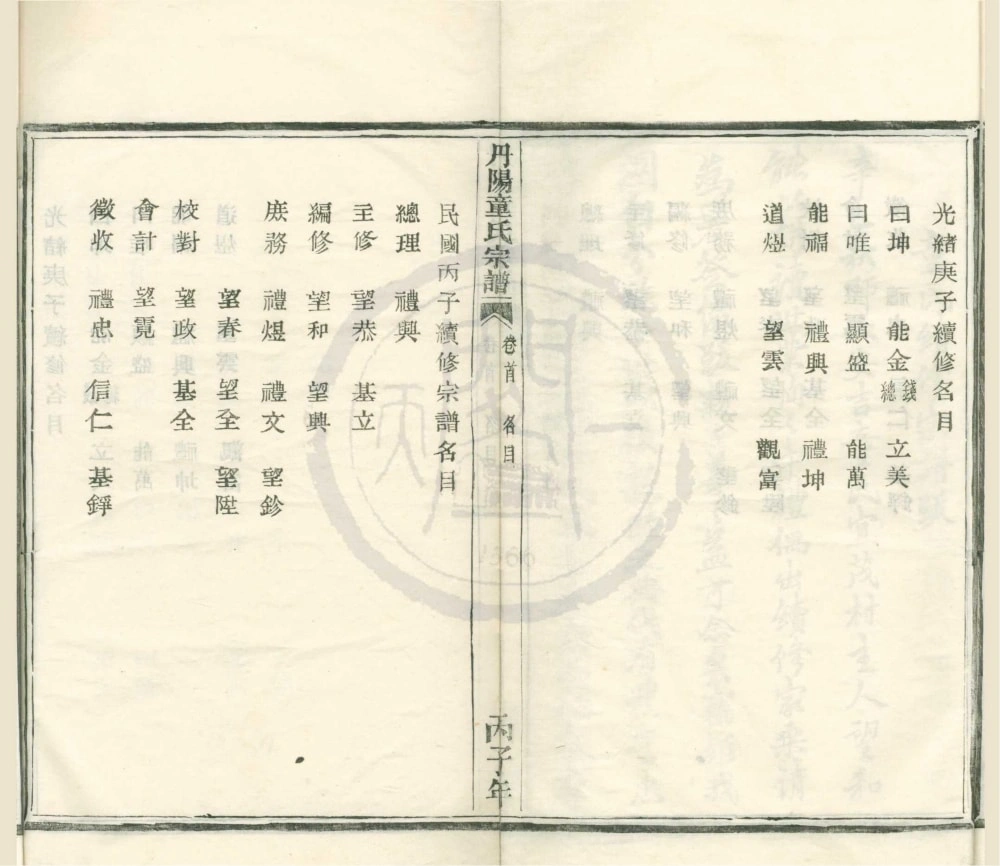 光緒庚子續修名目
曰坤 能金 錢總 立美
曰唯 顯盛 能萬
能福 禮興 禮坤
道煜 望雲 觀富
丹陽童氏宗譜 卷首 名目 丙子年
民國丙子續修宗譜名目
總理 禮興
主修 望恭 基立
編修 望和 望興
庶務 禮煜 禮文 望鉁
望春 望全 望陞
校對 望政 基全
會計 望霓
徵收 禮忠 信仁 基錚
1366